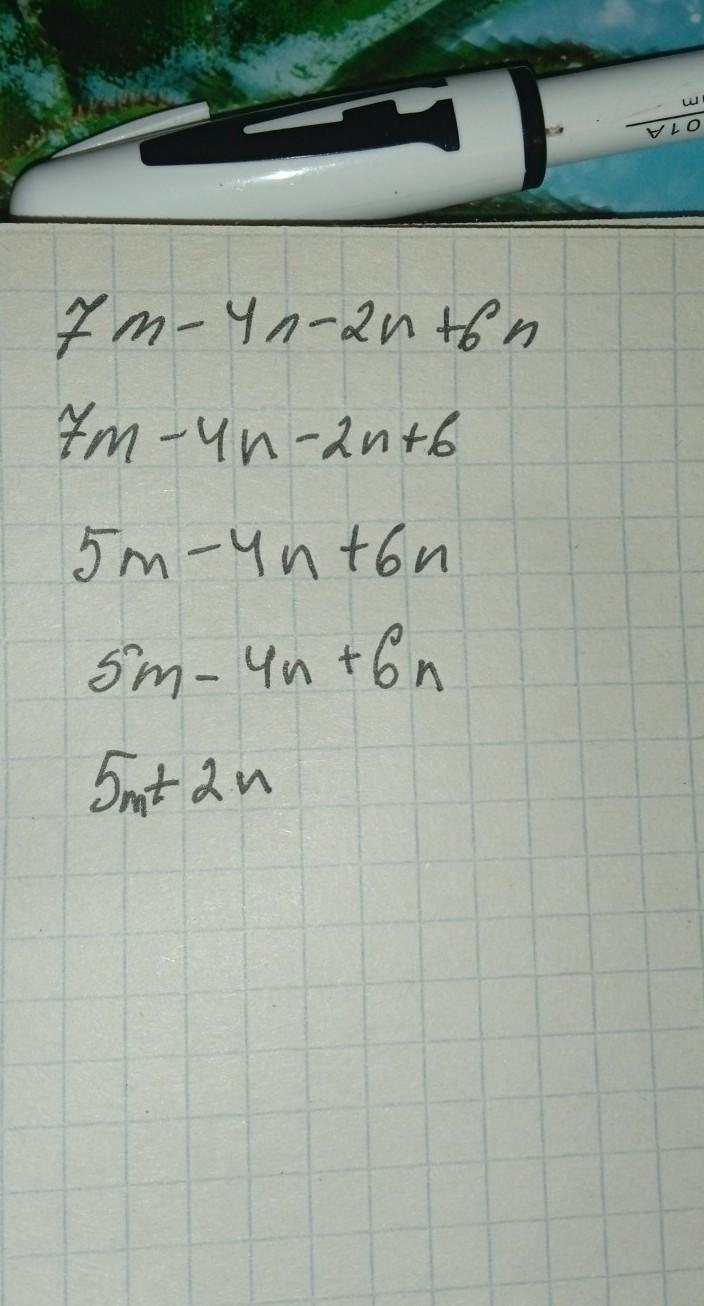 01A
7m-4n-2n+6n
7m-4n-2n+6
5m-4n+6n
5m-4n+6n
5m+2n